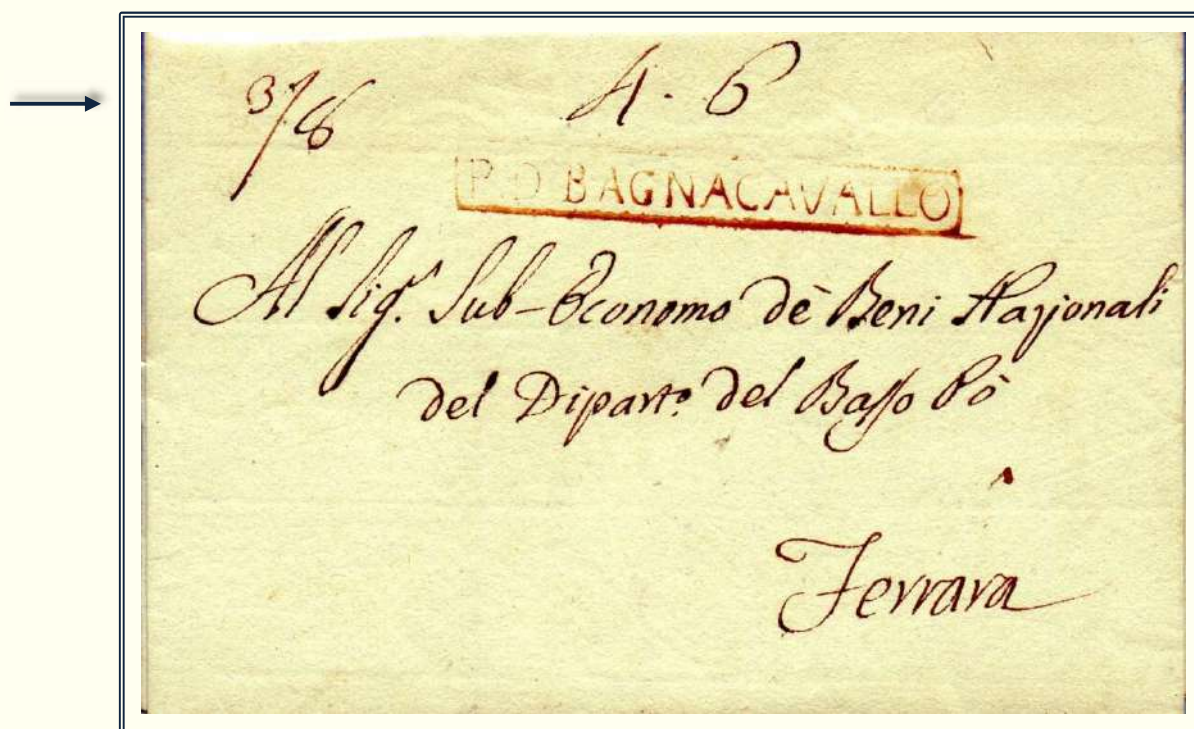 3/8
4 - 6
P. D BAGNACAVALLO
Al Sig.r Sub-Economo dè Beni Nazionali
del Dipart.o del Basso Pò
Ferrara